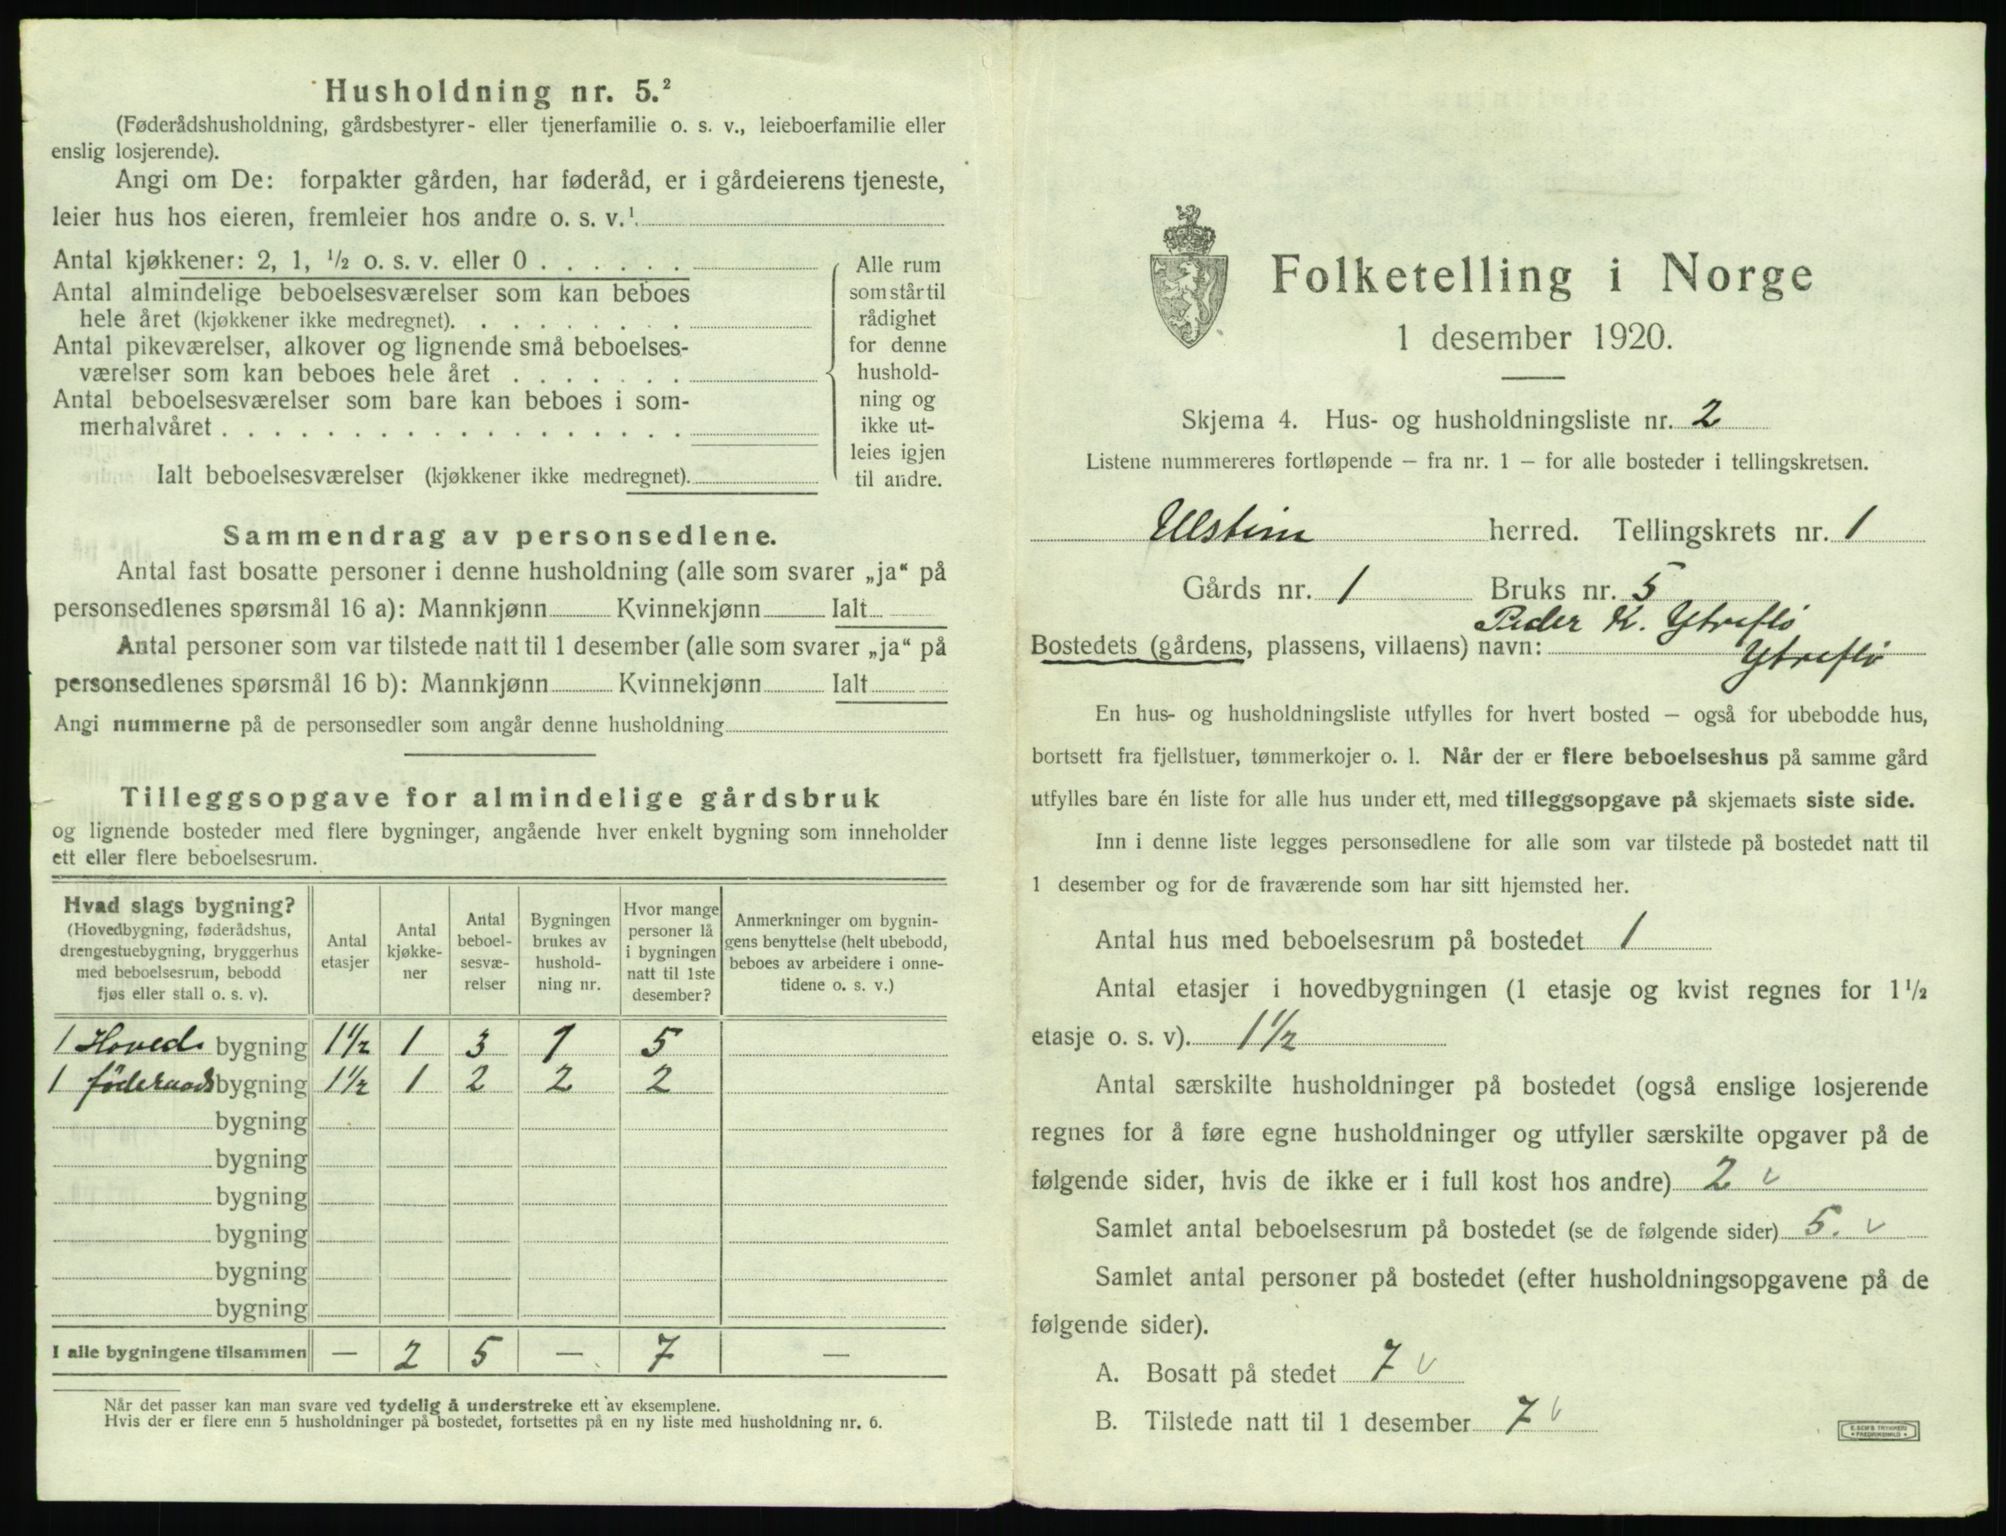 Husholdning nr. 5.²
(Føderådshusholdning, gårdsbestyrer- eller tjenerfamilie o. s. v., leieboerfamilie eller
enslig losjerende).
Angi om De: forpakter gården, har føderåd, er i gårdeierens tjeneste,
leier hus hos eieren, fremleier hos andre o. s. v.¹
Antal kjøkkener: 2, 1, ½ o. s. v. eller 0 . . . . . .
Antal almindelige beboelsesværelser som kan beboes
hele året (kjøkkener ikke medregnet). . . . . . . . .
Antal pikeværelser, alkover og lignende små beboelses-
værelser som kan beboes hele året . . . . . . .
Antal beboelsesværelser som bare kan beboes i som-
merhalvåret . . . . . . . . . . . . . . . . . .
Ialt beboelsesværelser (kjøkkener ikke medregnet).
Alle rum
som står til
rådighet
for denne
hushold-
ning og
ikke ut-
leies igjen
til andre.
Sammendrag av personsedlene.
Antal fast bosatte personer i denne husholdning (alle som svarer „ja“ på
personsedlenes spørsmål 16 a): Mannkjønn Kvinnekjønn Ialt
Antal personer som var tilstede natt til 1 desember (alle som svarer „ja“ på
personsedlenes spørsmål 16 b): Mannkjønn Kvinnekjønn Ialt
Angi nummerne på de personsedler som angår denne husholdning
Tilleggsopgave for almindelige gårdsbruk
og lignende bosteder med flere bygninger, angående hver enkelt bygning som inneholder
ett eller flere beboelsesrum.
Hvad slags bygning?
(Hovedbygning, føderådshus,
drengestuebygning, bryggerhus
med beboelsesrum, bebodd
fjøs eller stall o. s. v).
Antal
etasjer
Antal
kjøkke-
ner
Antal
beboel-
sesvæ-
relser
Bygningen
brukes av
hushold-
ning nr.
Hvor mange
personer lå
i bygningen
natt til 1ste
desember?
Anmerkninger om bygnin-
gens benyttelse (helt ubebodd,
beboes av arbeidere i onne-
tidene o. s. v.)
1 Hoved bygning 1½ 1 3 1 5
1 føderaads bygning 1½ 1 2 2 2
bygning
bygning
bygning
bygning
bygning
bygning
I alle bygningene tilsammen — 2 5 — 7 —
Når det passer kan man svare ved tydelig å understreke ett av eksemplene.
Hvis der er flere enn 5 husholdninger på bostedet, fortsettes på en ny liste med husholdning nr. 6.
Folketelling i Norge
1 desember 1920.
Skjema 4. Hus- og husholdningsliste nr. 2
Listene nummereres fortløpende – fra nr. 1 – for alle bosteder i tellingskretsen.
Ulstein herred. Tellingskrets nr. 1
Gårds nr. 1 Bruks nr. 5
Peder K. Ytreflø
Bostedets (gårdens, plassens, villaens) navn: Ytreflø
En hus- og husholdningsliste utfylles for hvert bosted – også for ubebodde hus,
bortsett fra fjellstuer, tømmerkojer o. l. Når der er flere beboelseshus på samme gård
utfylles bare én liste for alle hus under ett, med tilleggsopgave på skjemaets siste side.
Inn i denne liste legges personsedlene for alle som var tilstede på bostedet natt til
1 desember og for de fraværende som har sitt hjemsted her.
Antal hus med beboelsesrum på bostedet 1
Antal etasjer i hovedbygningen (1 etasje og kvist regnes for 1½
etasje o. s. v). 1½
Antal særskilte husholdninger på bostedet (også enslige losjerende
regnes for å føre egne husholdninger og utfyller særskilte opgaver på de
følgende sider, hvis de ikke er i full kost hos andre) 2 v
Samlet antal beboelsesrum på bostedet (se de følgende sider) 5. v
Samlet antal personer på bostedet (efter husholdningsopgavene på de
følgende sider).
A. Bosatt på stedet 7 v
B. Tilstede natt til 1 desember 7 v